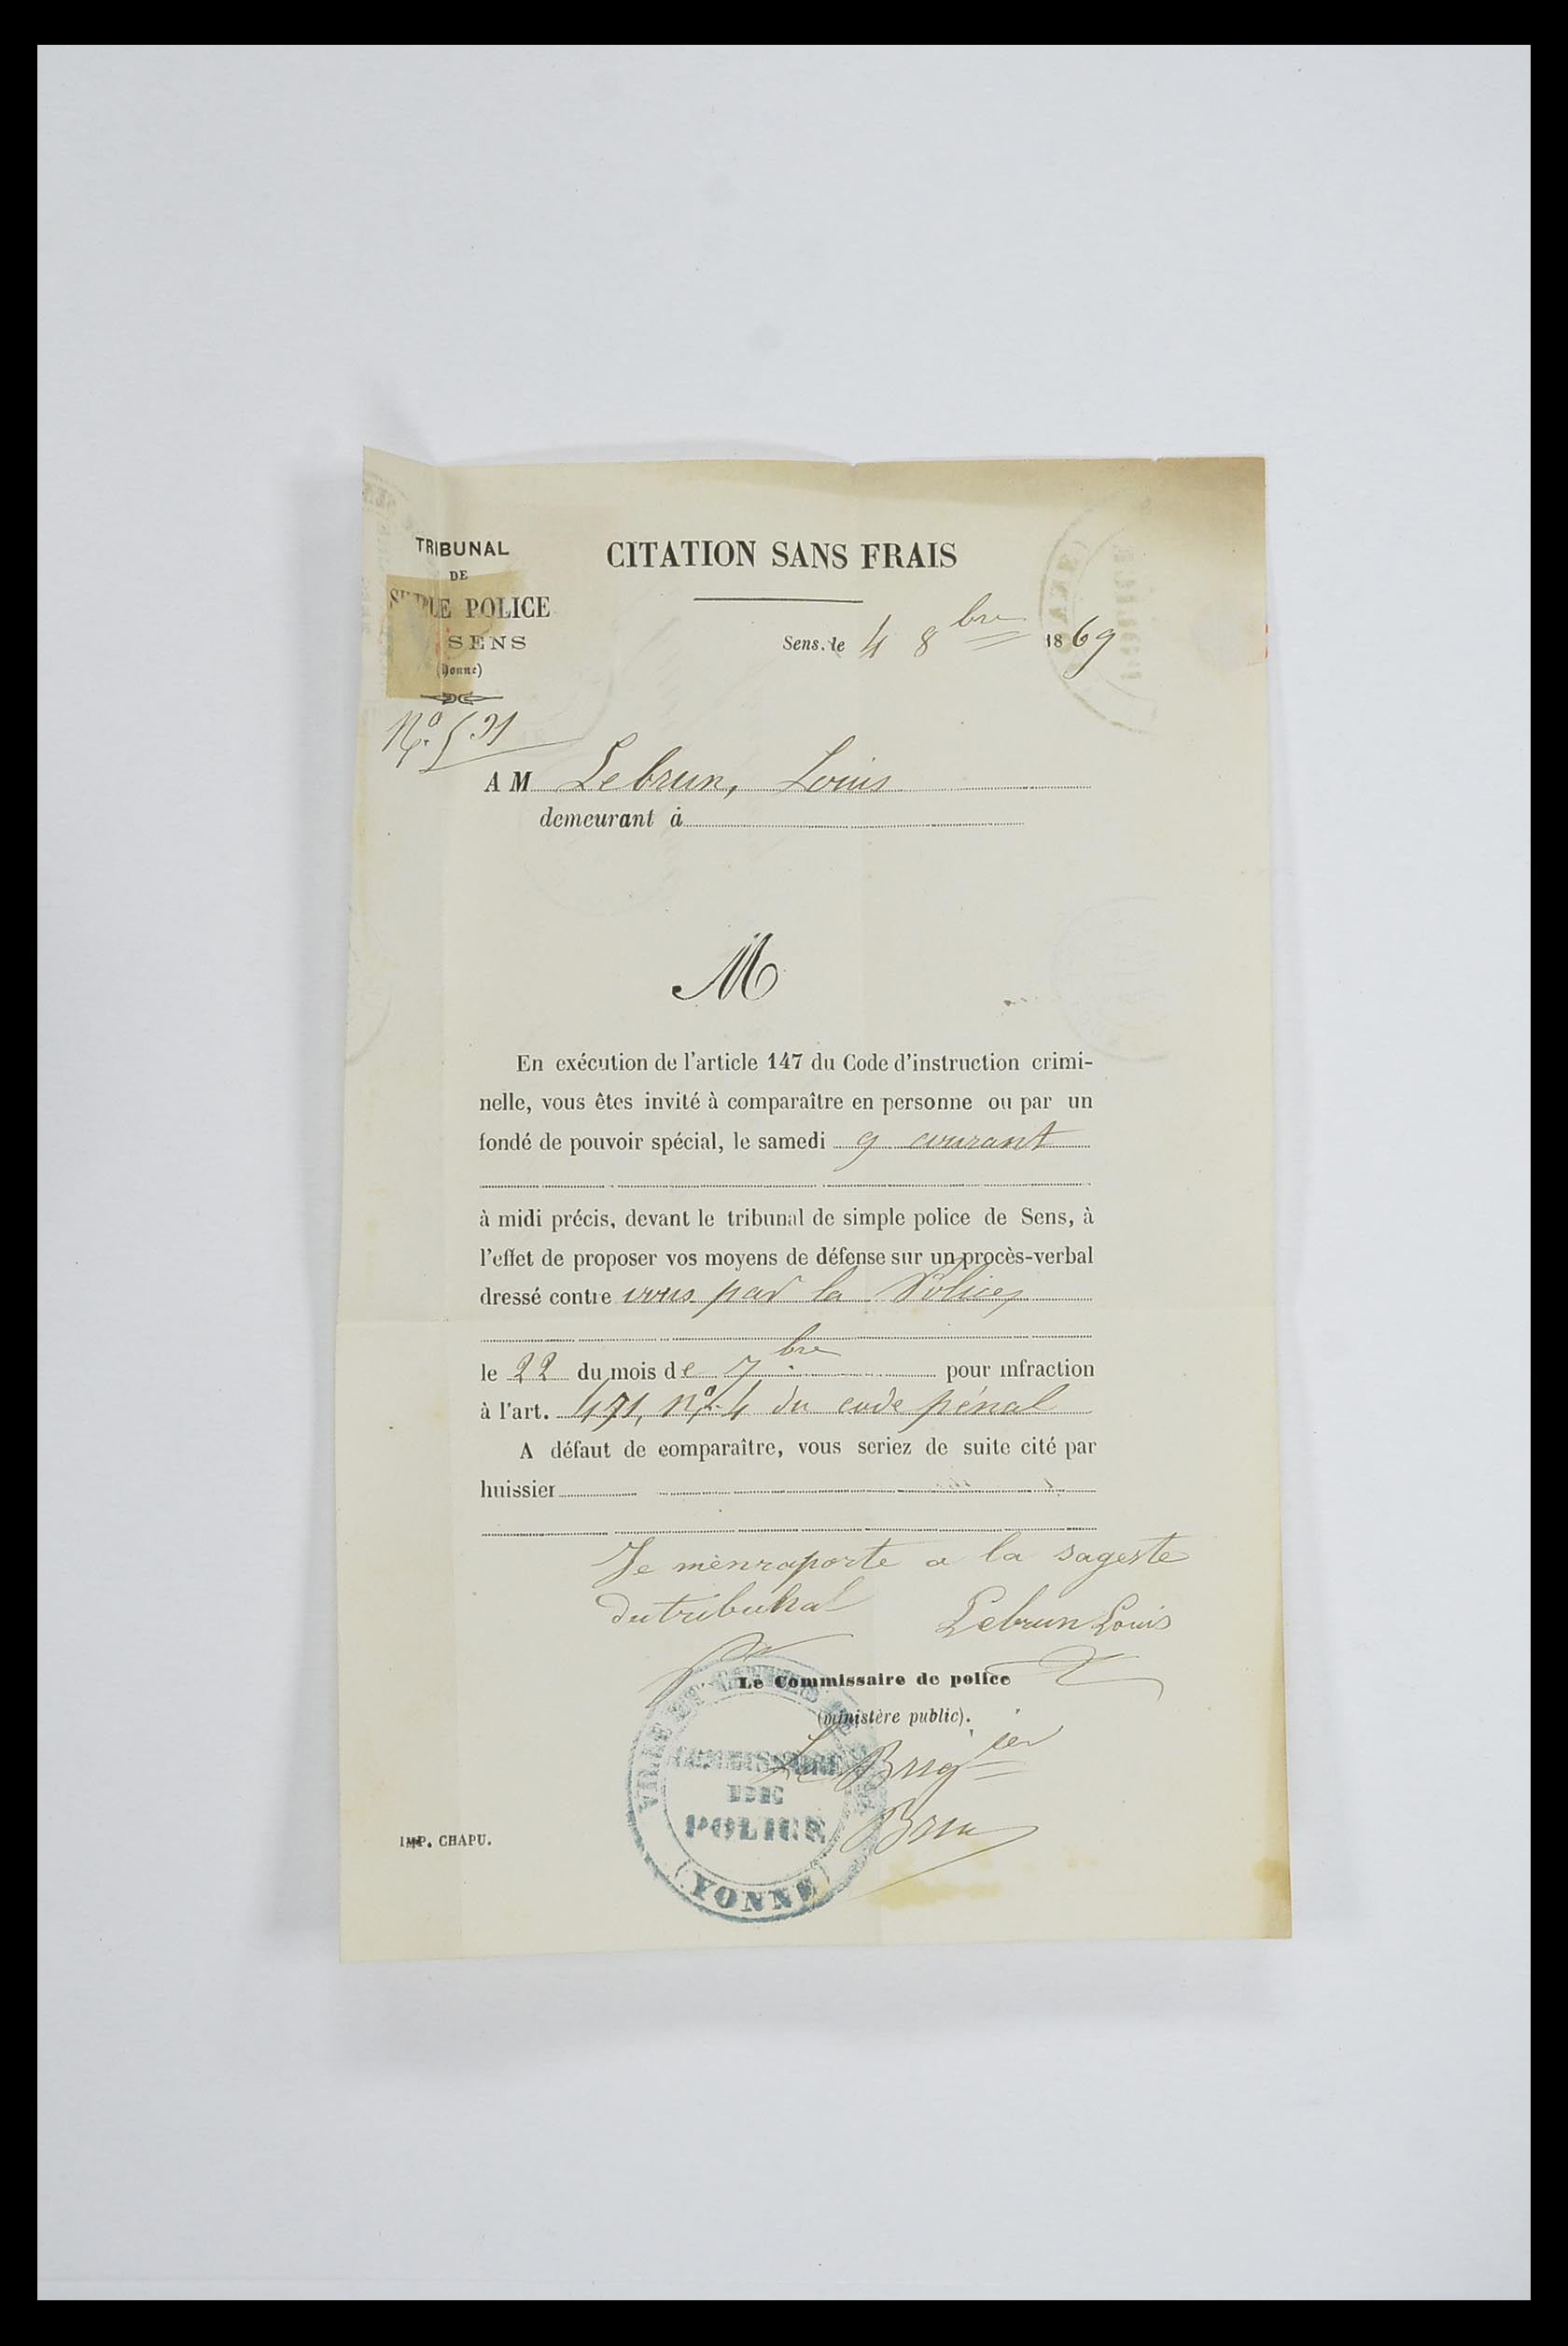 TRIBUNAL
DE
SIMPLE POLICE
SENS
(Yonne)
CITATION SANS FRAIS
Sens, le 4 8bre 1869
No. 531
A M Lebrun, Louis
demeurant à
M
En exécution de l'article 147 du Code d'instruction crimi-
nelle, vous êtes invité à comparaître en personne ou par un
fondé de pouvoir spécial, le samedi 9 courant
à midi précis, devant le tribunal de simple police de Sens, à
l'effet de proposer vos moyens de défense sur un procès-verbal
dressé contre vous par la Police,
le 22 du mois de 7bre pour infraction
à l'art. 471, No. 4 du code pénal
A défaut de comparaître, vous seriez de suite cité par
huissier
Je mènraporte a la sageste
du tribunal Lebrun Louis
Le Commissaire de police
(ministère public).
Le Brigier
COMMISSAIRE
DE
POLICE
(YONNE)
IMP. CHAPU.